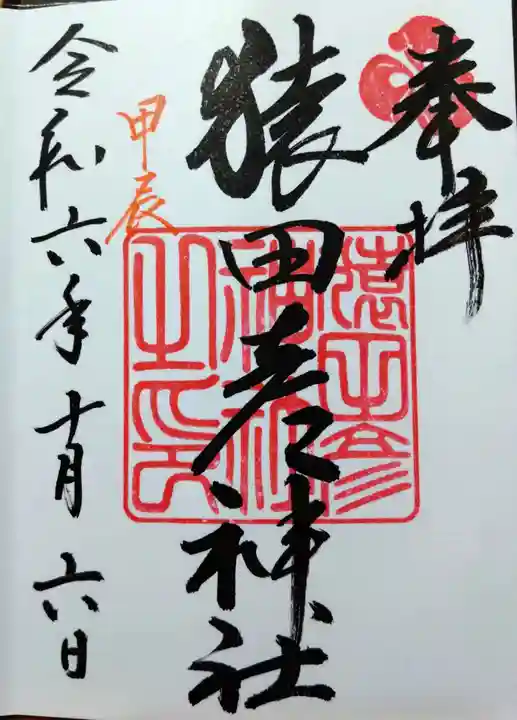 奉拝
猿田彦神社
甲辰
令和六年十月六日
猿田彦
神社
之印